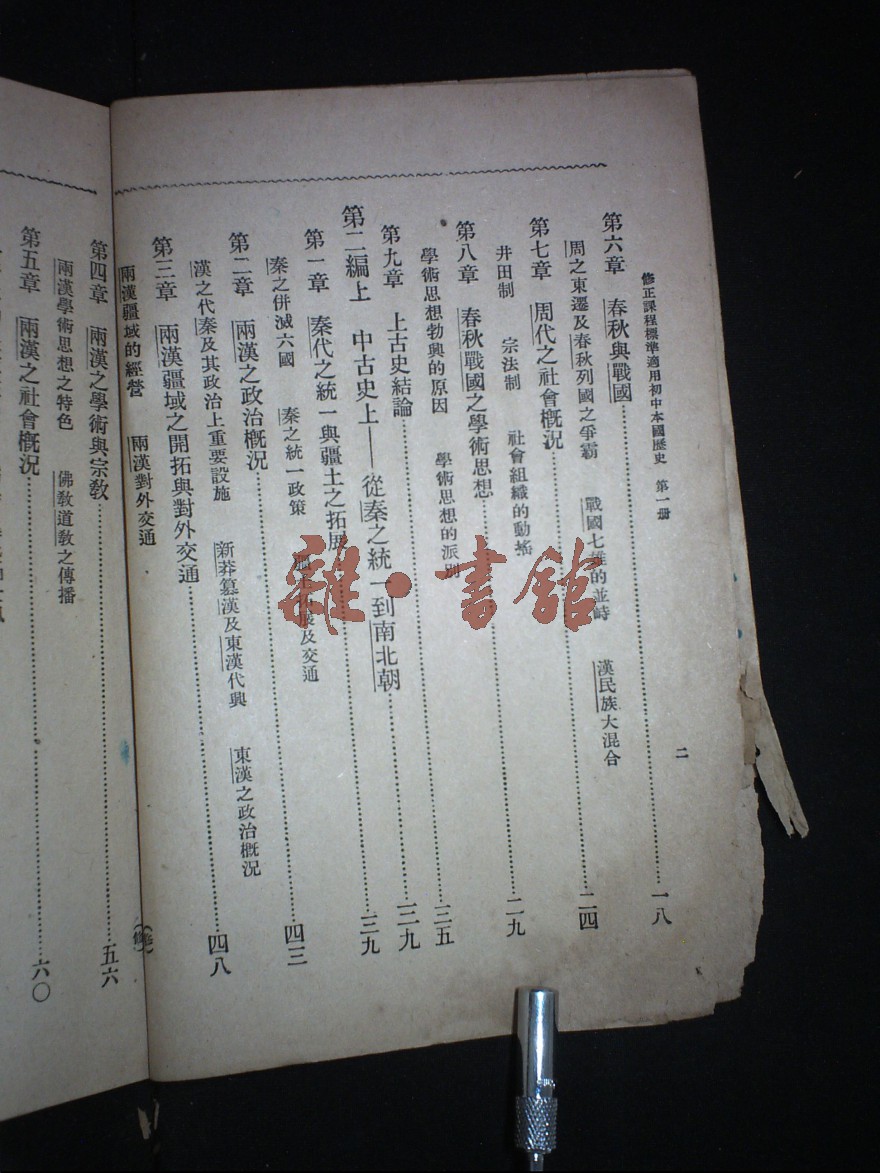 修正課程標準適用初中本國歷史　第一册
二
第六章　春秋與戰國……一八
周之東遷及春秋列國之爭霸　戰國七雄的並峙　漢民族大混合
第七章　周代之社會概況……二四
井田制　宗法制　社會組織的動搖
第八章　春秋戰國之學術思想……二九
學術思想勃興的原因　學術思想的派別
第九章　上古史結論……三五
第二編上　中古史上——從秦之統一到南北朝……三九
第一章　秦代之統一與疆土之拓展……三九
秦之併滅六國　秦之統一政策　展及交通
第二章　兩漢之政治概況……四三
漢之代秦及其政治上重要設施　新莽篡漢及東漢代興　東漢之政治概況
第三章　兩漢疆域之開拓與對外交通……四八
兩漢疆域的經營　兩漢對外交通
第四章　兩漢之學術與宗敎……五六
兩漢學術思想之特色　佛敎道敎之傳播
第五章　兩漢之社會概況……六〇
雜·書館